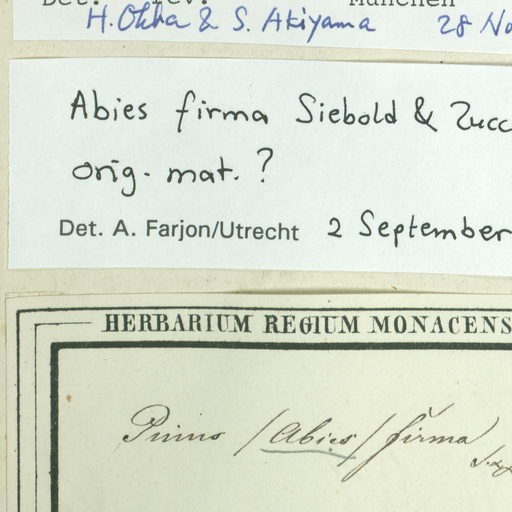 München
H. Ohba & S. Akiyama 28 No
Abies firma Siebold & Zucc
orig. mat. ?
Det. A. Farjon/Utrecht 2 September
HERBARIUM REGIUM MONACENS
Pinus (Abies) firma